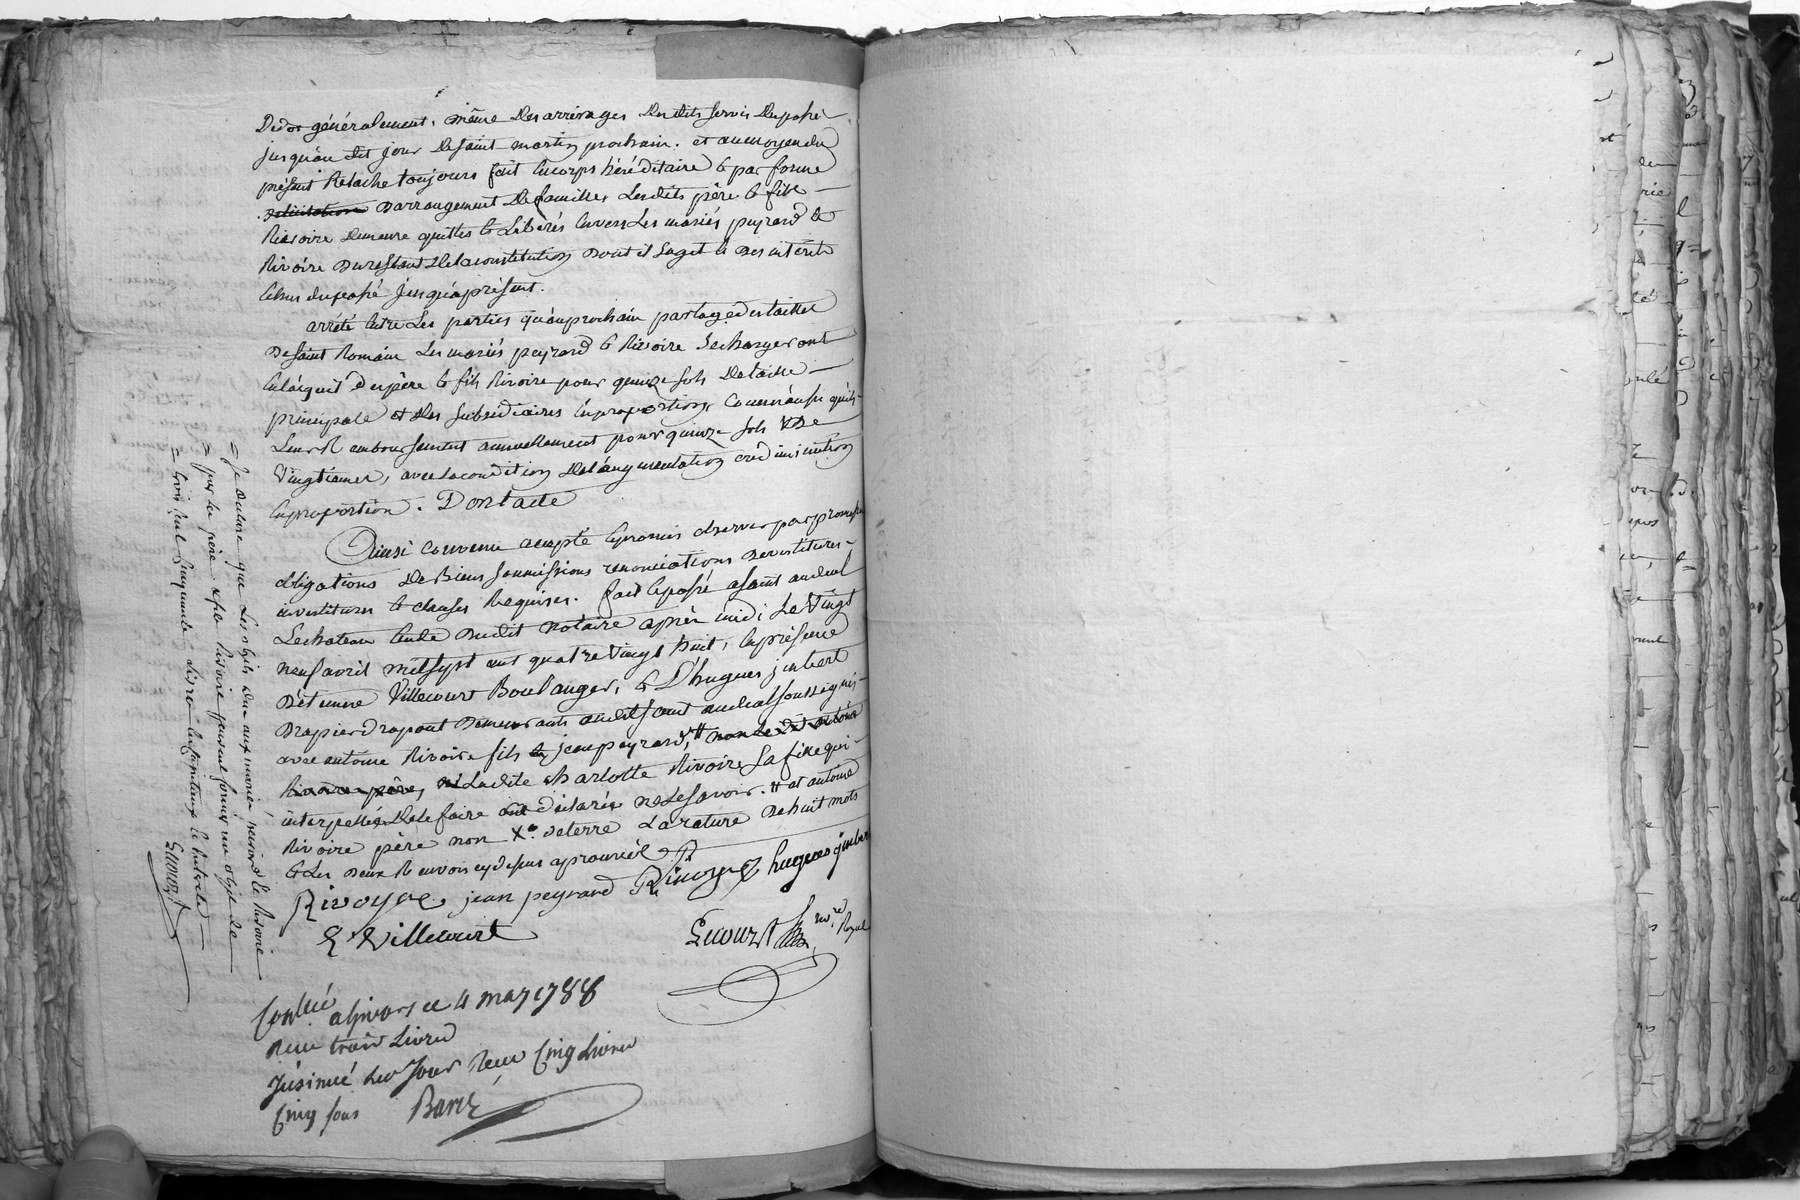 généralement, même des arrérages desdits servis du passé
jusqu'au dit jour de saint martin prochain. et au moyen du
présent Relache toujours fait en corps héréditaire & par forme
d'arrangement de famille, lesdits père & fils
Rivoire demeure quittes & Libérés envers Les mariés peyrard &
Rivoire du restant de la constitution dont il sagit & des intérêts
échus du passé jusqu'a présent.
arrété entre Les parties qu'au prochain partage des tailles
de saint Romain Les mariés peyrard & Rivoire se chargeront
a l'acquit des père & fils Rivoire pour quinze sols de taille
principale et des subsidiaires en proportion, comme aussi qu'ils
Leur Rembourseront annuellement pour quinze sols de
Vingtiemes, avec la condition de l'augmentation ou diminution
en proportion. Dont acte
Ainsi convenu accepté & promis observer par promesses
obligations de Biens soumissions renonciations devestitures
investitures & clauses Requises. fait & passé a saint andeol
Le chateau Etude dudit notaire après midi, Le Vingt
neuf avril mil sept cent quatre Vingt huit, En présence
d'étienne Villecourt Boulanger, & d'hugues jmbert
drapier drapant demeurants audit saint andeol soussignés
avec antoine Rivoire fils & jean peyrard, # non Ledit antoine
Rivoire père, ni Ladite charlotte Rivoire sa fille qui
interpellée de le faire ont déclaré ne le savoir. # et antoine
Rivoire père non de terre La rature de huit mots
& Les deux Renvois cydessus aprouvée
Rivoyre jean peyrard Rivoyre hugues jmbert
E Villecourt
not.re Royal
Con.lé a Givors ce 4 may 1788
Reçu trois Livres
Jnsinué led Jour Reçu Cinq Livres
Cinq sous
= Je déclare que Les objets dus aux mariés peyrard & Rivoire
= par les père & fils Rivoire peuvent former un objet de
= trois cent cinquante Livres